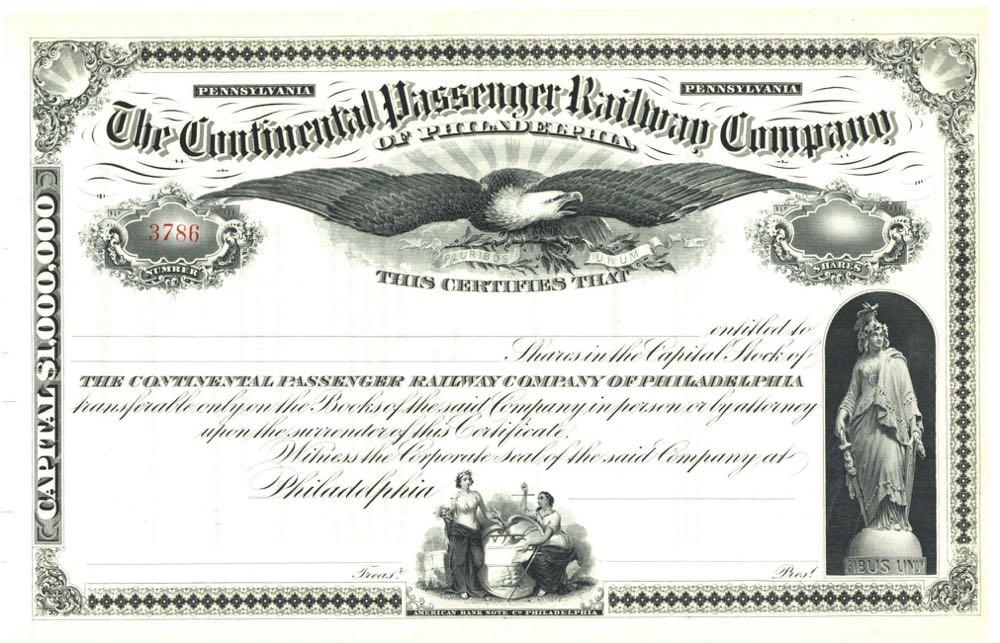 PENNSYLVANIA
PENNSYLVANIA
The Continental Passenger Railway Company
OF PHILADELPHIA.
3786
NUMBER
PLURIBUS UNUM
SHARES
THIS CERTIFIES THAT
CAPITAL $1,000,000
entitled to
Shares in the Capital Stock of
THE CONTINENTAL PASSENGER RAILWAY COMPANY OF PHILADELPHIA
transferable only on the Books of the said Company in person or by attorney
upon the surrender of this Certificate.
Witness the Corporate Seal of the said Company at
Philadelphia
Treas.r
Pres.t
RIBUS UNU
AMERICAN BANK NOTE Co PHILADELPHIA